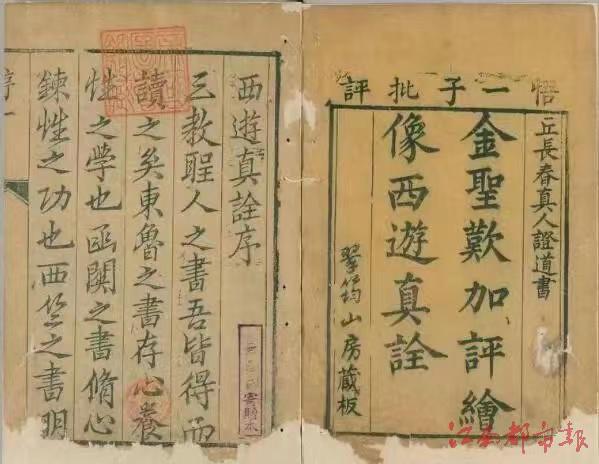 悟一子批評
丘長春真人證道書
金聖歎加評繪
像西遊真詮
翠筠山房藏板
西遊真詮序
三教聖人之書吾皆得而
讀之矣東魯之書存心養
性之學也函關之書脩心
鍊性之功也西竺之書明
序一
江南都市報